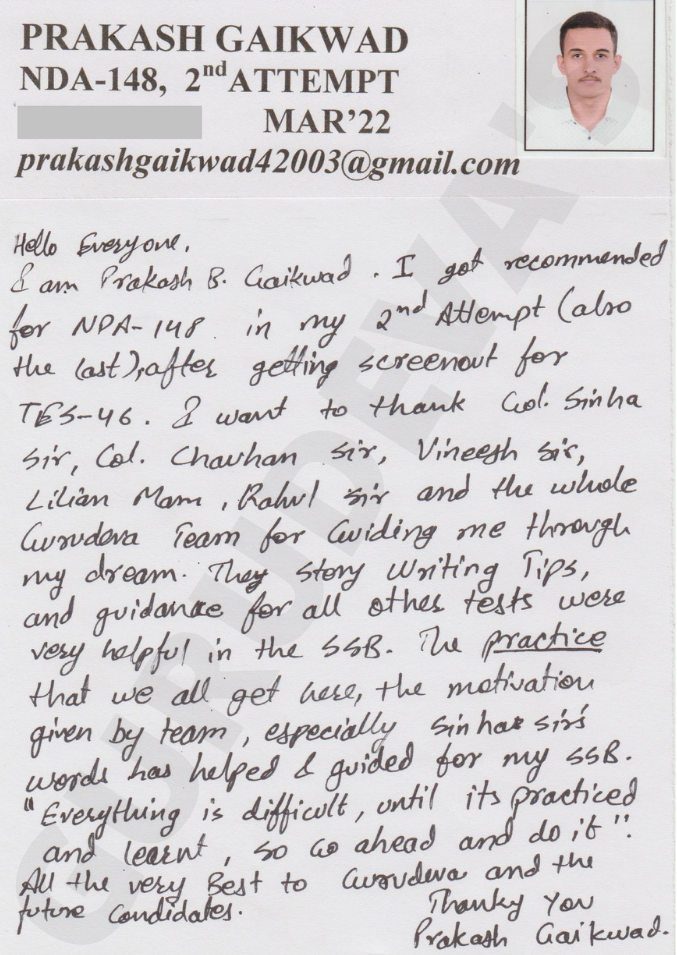 PRAKASH GAIKWAD
NDA-148, 2nd ATTEMPT
MAR'22
prakashgaikwad42003@gmail.com
Hello Everyone,
I am Prakash B. Gaikwad. I got recommended
for NDA-148 in my 2nd Attempt (also
the last), after getting screenout for
TES-46. I want to thank Col. Sinha
Sir, Col. Chavhan Sir, Vineesh Sir,
Lilian Mam, Rahul Sir and the whole
Gurudeva Team for Guiding me through
my dream. They story Writing Tips,
and guidance for all other tests were
very helpful in the SSB. The practice
that we all get here, the motivation
given by team, especially Sinha sir's
words has helped & guided for my SSB.
"Everything is difficult, until its practiced
and learnt, so Go ahead and do it".
All the very Best to Gurudeva and the
future Candidates.
Thanky You
Prakash Gaikwad.
GURUDEVA'S